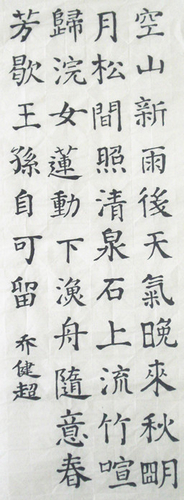 空山新雨後天氣晚來秋朙
月松間照清泉石上流竹喧
歸浣女蓮動下漁舟隨意春
芳歇王孫自可留
乔健超